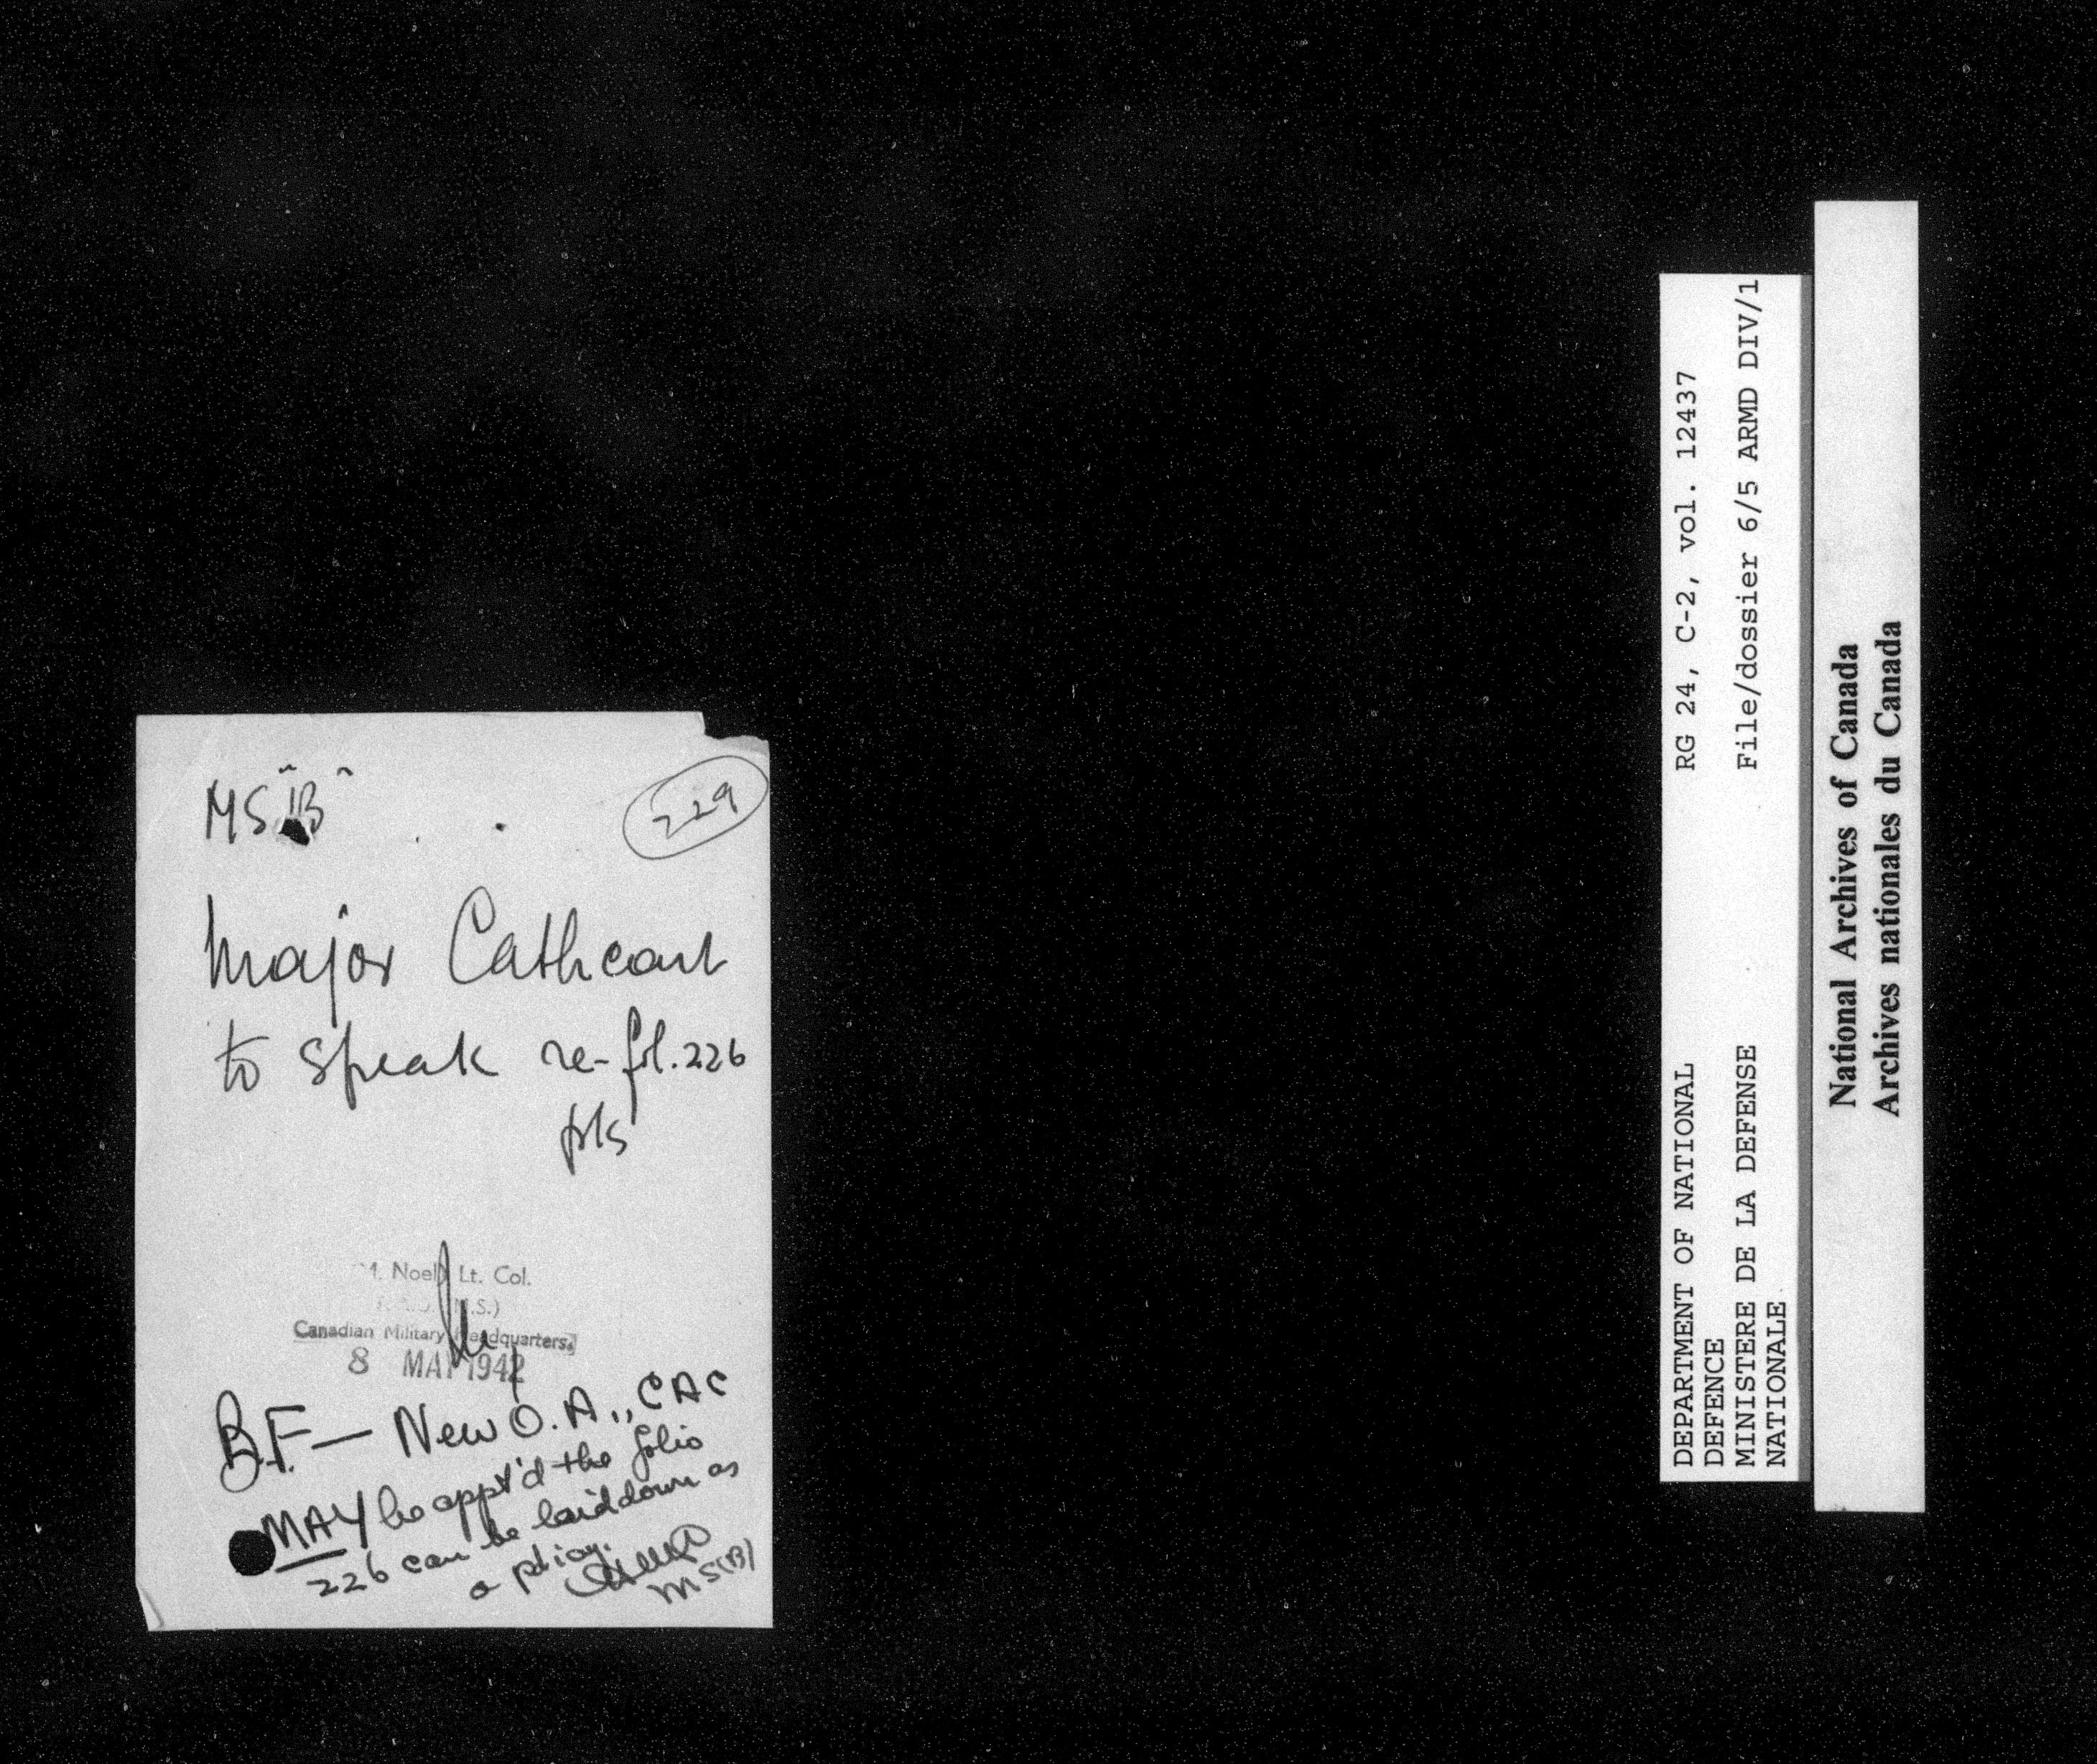 MS "B"
229
Major Cathcart
to speak re- fol. 226
pls
Noel Lt. Col.
M.S.)
Canadian Military Headquarters,
8 MAY 1942
B.F. — New O.A., CAC
MAY be appt'd the folio
226 can be laid down as
a policy.
MS(B)
RG 24, C-2, vol. 12437
File/dossier 6/5 ARMD DIV/1
DEPARTMENT OF NATIONAL
DEFENCE
MINISTERE DE LA DEFENSE
NATIONALE
National Archives of Canada
Archives nationales du Canada